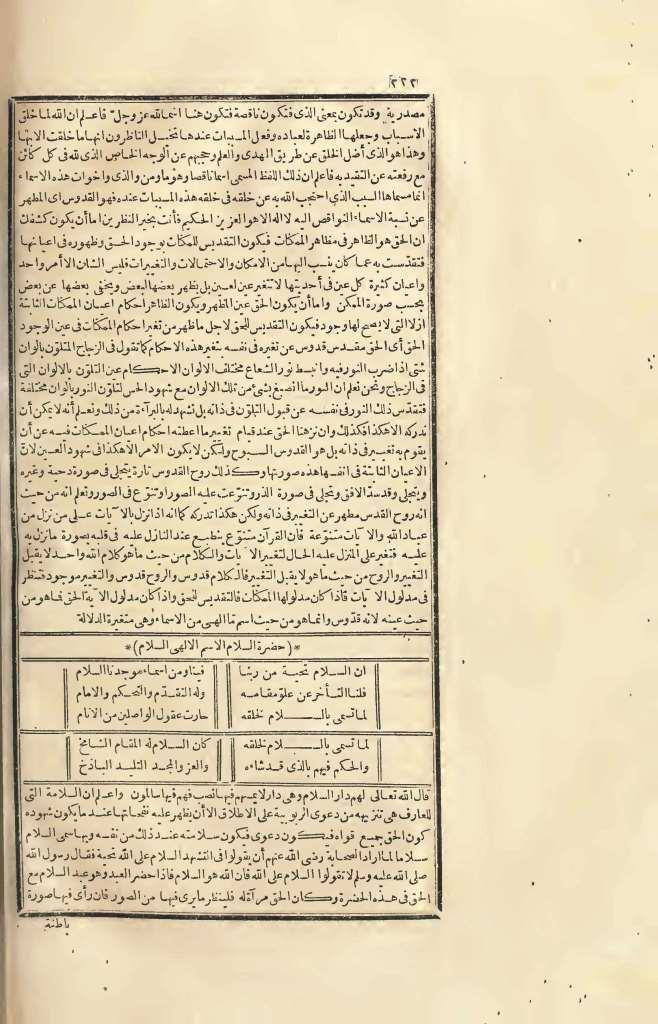 ٢٢٢
مصدرية وقد تكون بمعنى الذى فتكون ناقصة فتكون هنا اسما لله عز وجل فاعلم ان الله لما خلق
الاسباب وجعلها الظاهرة لعباده وفعل المسببات عندها تخيل الناظرون انها ما خلقت الا بها
وهذا هو الذى أضل الخلق عن طريق الهدى والعلم وحجبهم عن الوجه الخاص الذى لله فى كل كائن
مع رفعته عن التقييد به فاعلم ان ذلك اللفظ المسمى اسما ناقصا وهو ما ومن والذى وأخوات هذه الاسماء
انما مسماها السبب الذى احتجب الله به عن خلقه فى خلقه هذه المسببات عنده فهو القدوس اى المطهر
عن نسبة الاسماء النواقص اليه لا اله الا هو العزيز الحكيم فأنت بخير النظرين اما أن يكون كشفك
ان الحق هو الظاهر فى مظاهر الممكنات فيكون التقديس للممكنات بوجود الحق وظهوره فى اعيانها
فتقدست به عما كان ينسب اليها من الامكان والاحتمالات والتغييرات فليس الشان الا أمر واحد
واعيان كثيرة كل عين فى أحديتها لا تتغير عين لعين بل يظهر بعضها لبعض ويخفى بعضها عن بعض
بحسب صورة الممكن واما أن يكون الحق عين المظهر ويكون الظاهر أحكام اعيان الممكنات الثابتة
ازلا التى لا يصح لها وجود فيكون التقديس للحق لاجل ما ظهر من تغير احكام الممكنات فى عين الوجود
الحق أى الحق مقدس قدوس عن تغيره فى نفسه بتغير هذه الاحكام كما تقول فى الزجاج المتلون بألوان
شتى اذا ضرب النور فيه وانبسط نور الشعاع مختلف الالوان لاحكام عين التلون بالالوان التى
فى الزجاج ونحن نعلم ان النور ما انصبغ بشئ من تلك الالوان مع شهود الحس لتلون النور بألوان مختلفة
فتقدس ذلك النور فى نفسه عن قبول التلون فى ذاته بل تشهد له بالبراءة من ذلك ونعلم أنه لا يمكن أن
ندركه الا هكذا فكذلك وان نزهنا الحق عند قيام تغيير ما اعطته احكام اعيان الممكنات فيه عن أن
يقوم به تغيير فى ذاته بل هو القدوس السبوح ولكن لا يكون الامر الا هكذا فى شهود العين لان
الاعيان الثابتة فى انفسها هذه صورتها وكذلك روح القدوس تارة يتجلى فى صورة دحية وغيره
ويتجلى وقد سد الافق وتجلى فى صورة الذر وتنوعت عليه الصور او تنوع فى الصور ونعلم انه من حيث
انه روح القدس مطهر عن التغيير فى ذاته ولكن هكذا ندركه كما انه اذا نزل بالآيات على من نزل من
عباد الله والآيات متنوعة فان القرآن متنوع ينطبع عند النازل عليه فى قلبه بصورة ما نزل به
عليه فتغير على المنزل عليه الحال لتغيير الآيات والكلام من حيث ما هو كلام الله واحد لا يقبل
التغيير والروح من حيث ما هو لا يقبل التغيير فالكلام قدوس والروح قدوس والتغيير موجود فتنظر
فى مدلول الآيات فاذا كان مدلولها الممكنات فالتقديس للحق واذا كان مدلول الآية الحق فما هو من
حيث عينه لانه قدوس وانما هو من حيث اسم ما الهى من الاسماء وهى متغيرة الدلالة
* (حضرة السلام الاسم الالهى السلام) *
ان السلام تحية من ربنا فينا ومن اسماء موجدنا السلام
فلنا التأخر عن علو مقامه وله التقدم والتحكم والامام
لما تسمى بالسلام لخلقه حارت عقول الواصلين من الانام
لما تسمى بالسلام لخلقه كان السلام له المقام الشامخ
والحكم فيهم بالذى قد شاءه والعز والمجد التليد الباذخ
قال الله تعالى لهم دار السلام وهى دار لا يمسهم فيها نصب فهم فيها سالمون واعلم ان السلامة التى
للعارف هى تنزيهه من دعوى الربوبية على الاطلاق الا أن يظهر عليه نفحاتها عند ما يكون شهوده
كون الحق جميع قواه فيكون دعوى فيكون سلامته عند ذلك من نفسه وبها سمى السلام
سلاما لما اراد الصحابة رضى الله عنهم أن يقولوا فى التشهد السلام على الله تحية فقال رسول الله
صلى الله عليه وسلم لا تقولوا السلام على الله فان الله هو السلام فاذا حضر العبد وهو عبد السلام مع
الحق فى هذه الحضرة وكان الحق مرآة له فلينظر ما يرى فيها من الصور فان رأى فيها صورة
باطنة